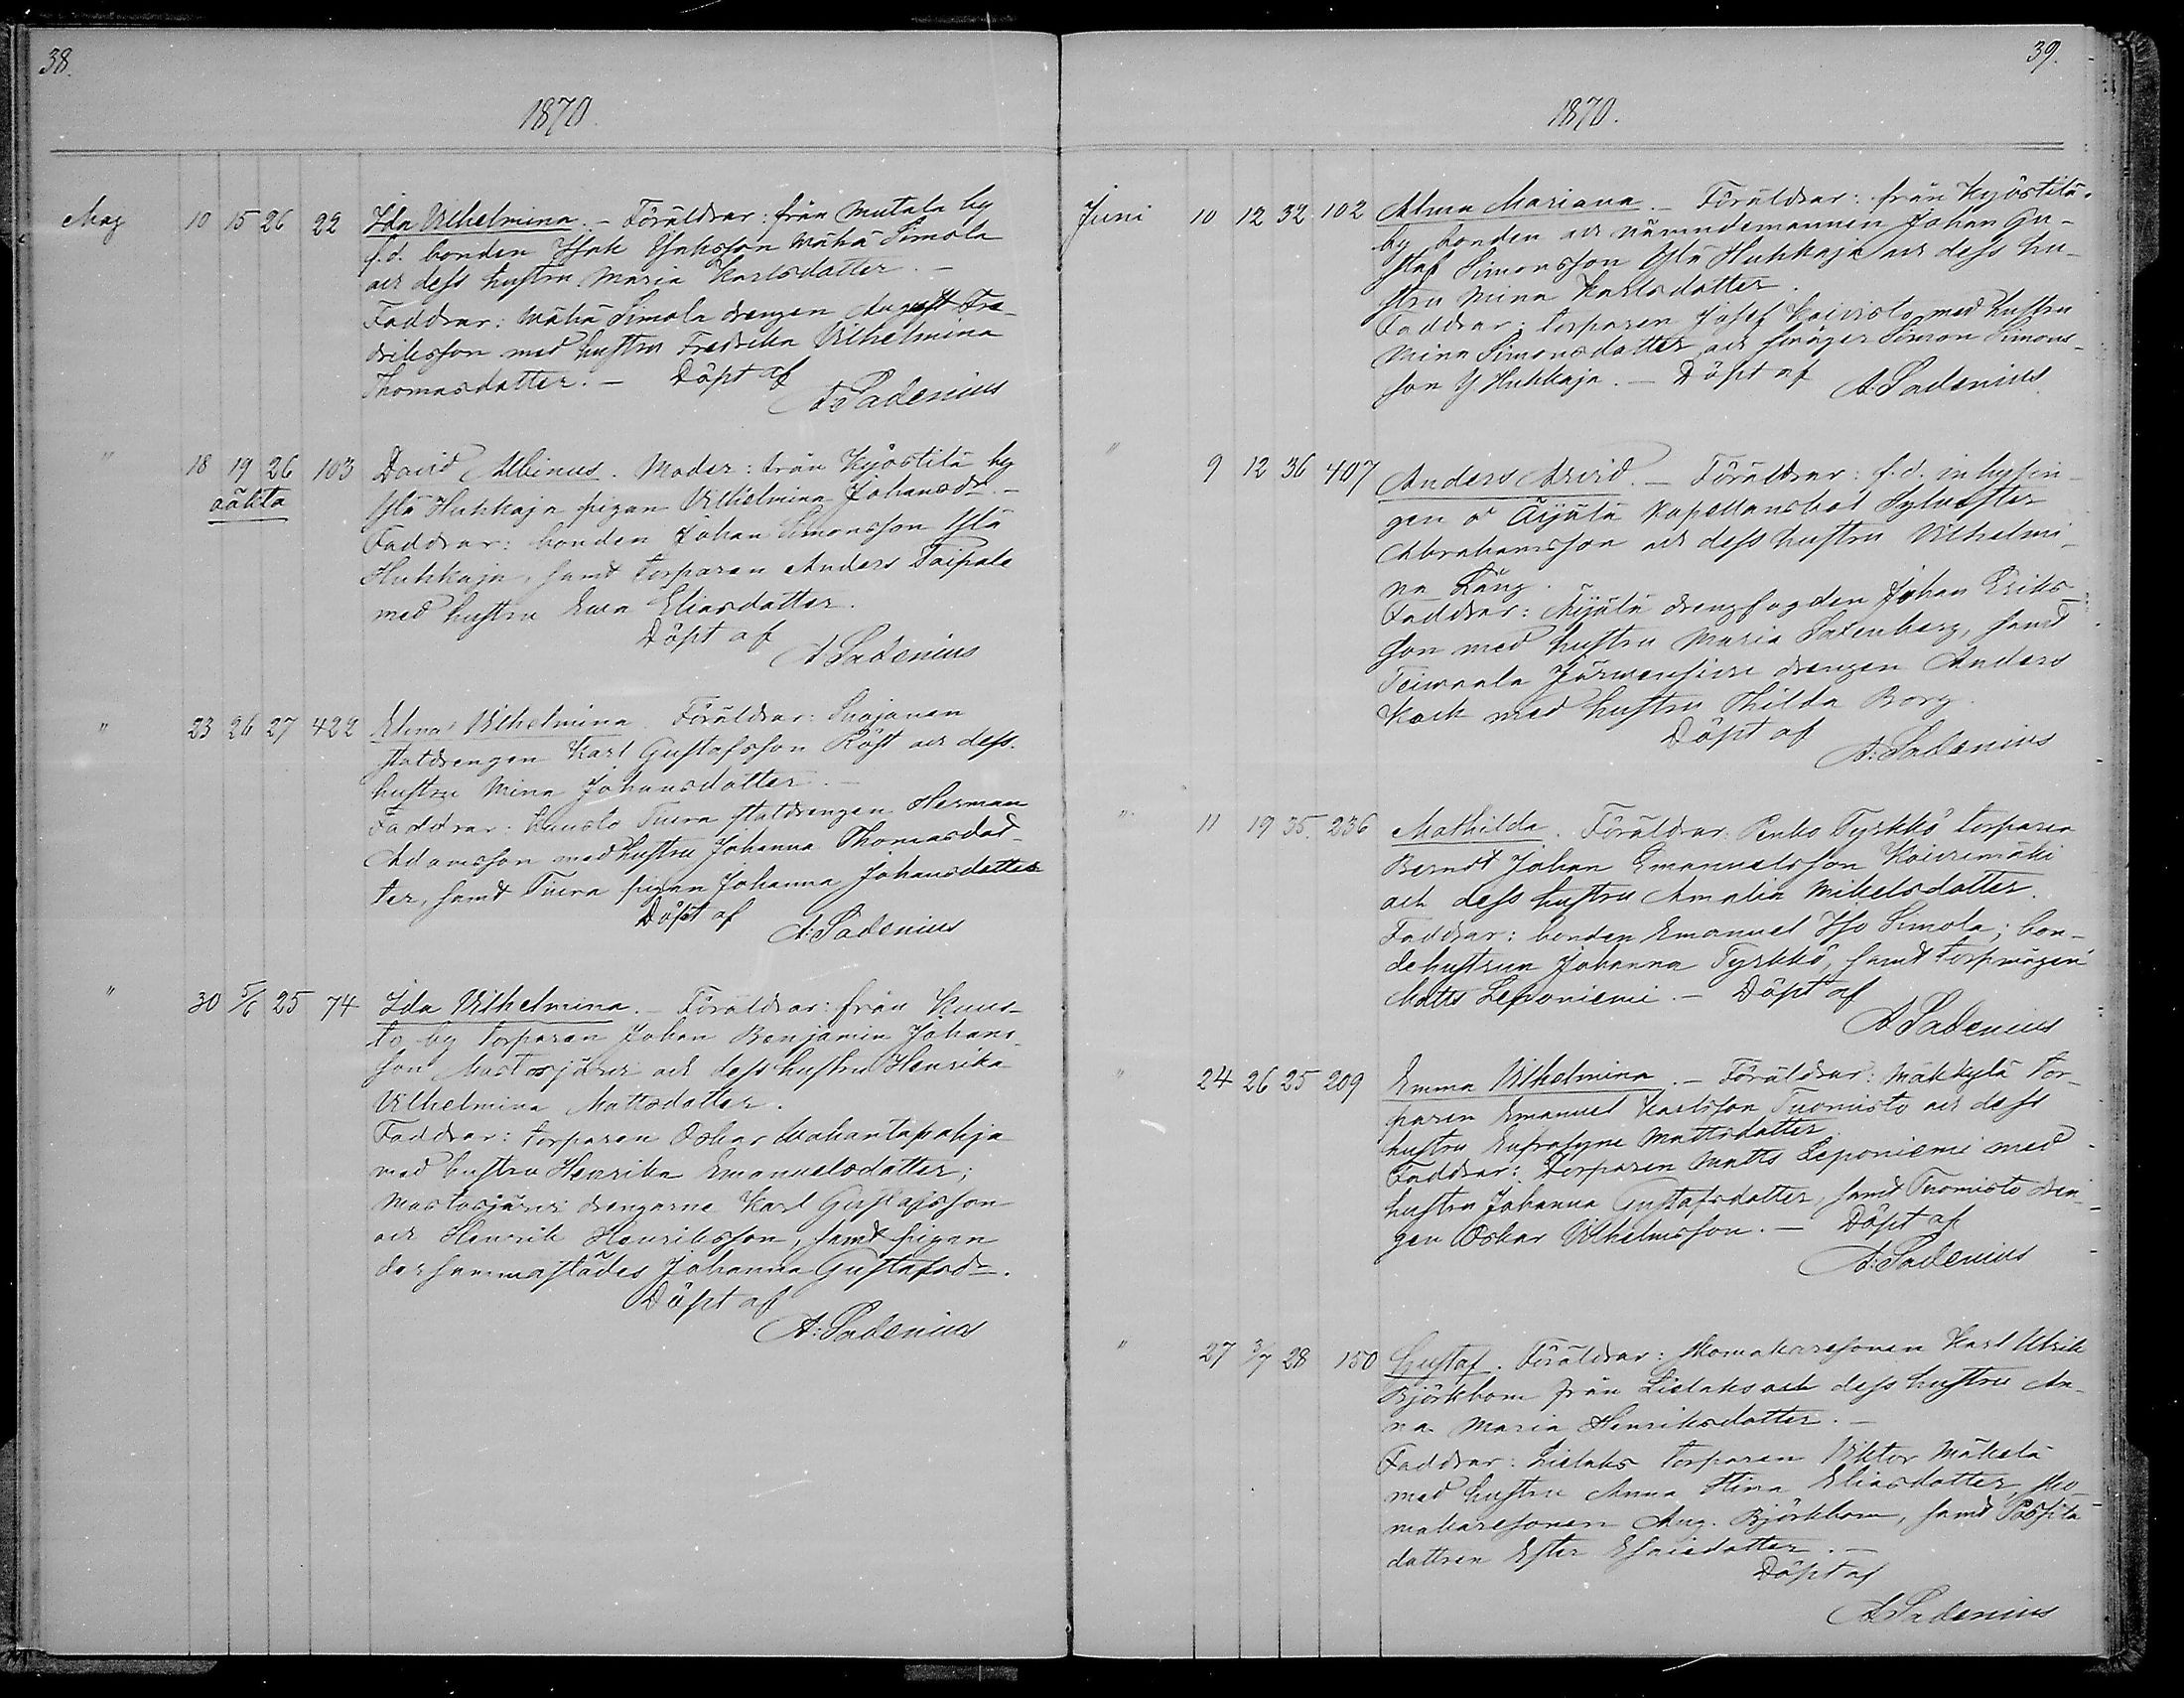 38.
1870.
Maj 10 15 26 22 Ida Vilhelmina. – Föräldrar: från Mutala by
f.d. bonden Isak Isaksson Mähä Simola
och dess hustru Maria Karlsdotter. –
Faddrar: Mähä Simola drengen August Fre-
driksson med hustru Fredrika Vilhelmina
Thomasdotter. – Döpt af
A. Sadenius
" 18 19 26 103 David Albinus. Moder: från Kyöstilä by
oäkta Yli Huhkaja pigan Vilhelmina Johansdr. –
Faddrar: bonden Johan Simonsson Yli
Huhkaja, samt torparen Anders Taipale
med hustru Eva Eliasdotter.
Döpt af
A. Sadenius
" 23 26 27 422 Elina Vilhelmina. Föräldrar: Suojanen
statdrengen Karl Gustafsson Röst och dess
hustru Mina Johansdotter. –
Faddrar: Kunsto Tuera statdrengen Herman
Adamsson med hustru Johanna Thomasdot-
ter, samt Tuera pigan Johanna Johansdotter
Döpt af
A: Sadenius
" 30 5/6 25 74 Ida Vilhelmina. – Föräldrar: från Kuus-
to by torparen Johan Benjamin Johans-
son Mustosjärvi och dess hustru Henrika
Vilhelmina Mattsdotter.
Faddrar: torparen Oskar Mahantapohja
med hustru Henrika Emanuelsdotter;
Mustosjärvi drengarne Karl Gustafsson
och Henrik Henriksson, samt pigan
dersammastädes Johanna Gustafsdr.
Döpt af
A: Sadenius
39.
1870.
Juni 10 12 32 102 Alma Mariana. – Föräldrar: från Kyöstilä
by bonden och nämndemannen Johan Gu-
staf Simonsson Yli Huhkaja och dess hu-
stru Mina Karlsdotter.
Faddrar: torparen Josef Koivisto med hustru
Mina Simonsdotter och svåger Simon Simons-
son Y Huhkaja. – Döpt af A. Sadenius
" 9 12 36 407 Anders Arvid. – Föräldrar: f.d. inhysin-
gen å Äijälä Kapellansbol Sylvester
Abrahamsson och dess hustru Vilhelmi-
na Läng.
Faddrar: Äijälä drengfogden Johan Eriks-
son med hustru Maria Sadenberg, samt
Teiwaala Järwensivu drengen Anders
Kock med hustru Hilda Borg.
Döpt af
A: Sadenius
" 11 19 35. 236 Mathilda. Föräldrar: Penko Tyrkkö torparen
Berndt Johan Emanuelsson Koivumäki
och dess hustru Amalia Mikelsdotter.
Faddrar: bonden Emanuel Iso Simola; bon-
dehustrun Johanna Tyrkkö, samt torpmågen
Matts Leponiemi. – Döpt af
A. Sadenius
" 24 26 25 209 Emma Vilhelmina. – Föräldrar: Mäkkylä tor-
paren Emanuel Karlsson Tuomisto och dess
hustru Eufrosyne Mattsdotter
Faddrar: Torparen Matts Leponiemi med
hustru Johanna Gustafsdotter, samt Tuomisto dren-
gen Oskar Vilhelmsson. – Döpt af
A: Sadenius
" 27 3/7 28 150 Gustaf. Föräldrar: Skomakaresonen Karl Ulrik
Björkbom från Lielaks och dess hustru An-
na Maria Henriksdotter. –
Faddrar: Lielaks torparen Viktor Mäkelä
med hustru Anna Stina Eliasdotter, sko-
makaresonen Aug. Björkbom, samt
dottren Ester Esaiedotter. –
Döpt af
A. Sadenius